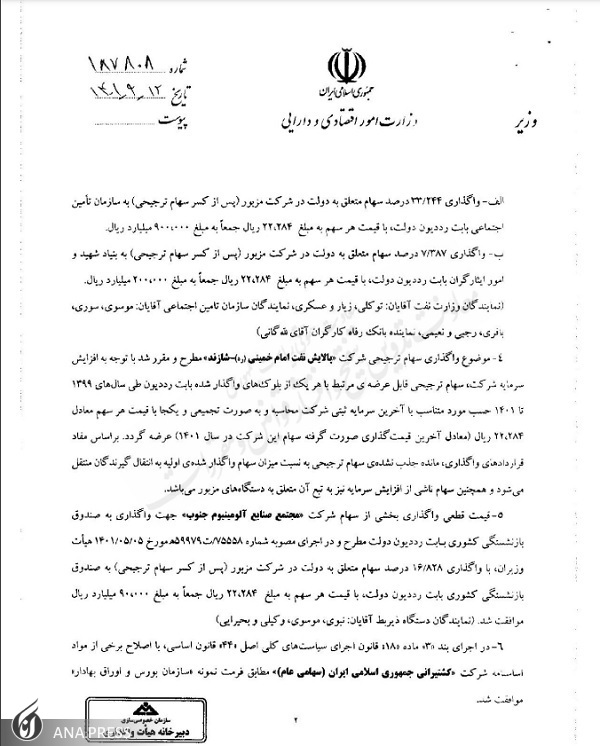 شماره ۱۸۷۸۰۸
تاریخ ۱۴۰۱_۹_۱۲
پیوست
جمهوری اسلامی ایران
وزارت امور اقتصادی و دارایی
وزیر
الف- واگذاری ۳۳/۲۴۴ درصد سهام متعلق به دولت در شرکت مزبور (پس از کسر سهام ترجیحی) به سازمان تأمین
اجتماعی بابت رددیون دولت، با قیمت هر سهم به مبلغ ۲۲,۲۸۴ ریال جمعاً به مبلغ ۹۰۰,۰۰۰ میلیارد ریال.
ب- واگذاری ۷/۳۸۷ درصد سهام متعلق به دولت در شرکت مزبور (پس از کسر سهام ترجیحی) به بنیاد شهید و
امور ایثارگران بابت رددیون دولت، با قیمت هر سهم به مبلغ ۲۲,۲۸۴ ریال جمعاً به مبلغ ۲۰۰,۰۰۰ میلیارد ریال.
(نمایندگان وزارت نفت آقایان: توکلی، زیار و عسکری، نمایندگان سازمان تامین اجتماعی آقایان: موسوی، سوری،
باقری، رجبی و نعیمی، نماینده بانک رفاه کارگران آقای لله‌گانی)
۴- موضوع واگذاری سهام ترجیحی شرکت «پالایش نفت امام خمینی (ره)-شازند» مطرح و مقرر شد با توجه به افزایش
سرمایه شرکت، سهام ترجیحی قابل عرضه‌ی مرتبط با هر یک از بلوک‌های واگذار شده بابت رددیون طی سال‌های ۱۳۹۹
تا ۱۴۰۱ حسب مورد متناسب با آخرین سرمایه ثبتی شرکت محاسبه و به صورت تجمیعی و یکجا با قیمت هر سهم معادل
۲۲,۲۸۴ ریال (معادل آخرین قیمت‌گذاری صورت گرفته سهام این شرکت در سال ۱۴۰۱) عرضه گردد. براساس مفاد
قراردادهای واگذاری، مانده جذب نشده‌ی سهام ترجیحی به نسبت میزان سهام واگذار شده‌ی اولیه به انتقال گیرندگان منتقل
می‌شود و همچنین سهام ناشی از افزایش سرمایه نیز به تبع آن متعلق به دستگاه‌های مزبور می‌باشد.
۵- قیمت قطعی واگذاری بخشی از سهام شرکت «مجتمع صنایع آلومینیوم جنوب» جهت واگذاری به صندوق
بازنشستگی کشوری بابت رددیون دولت مطرح و در اجرای مصوبه شماره ۷۵۵۵۸/ت۵۹۹۷۹ه‍ مورخ ۱۴۰۱/۰۵/۰۵ هیأت
وزیران، با واگذاری ۱۶/۸۲۸ درصد سهام متعلق به دولت در شرکت مزبور (پس از کسر سهام ترجیحی) به صندوق
بازنشستگی کشوری بابت رددیون دولت، با قیمت هر سهم به مبلغ ۲۲,۲۸۴ ریال جمعاً به مبلغ ۹۰,۰۰۰ میلیارد ریال
موافقت شد. (نمایندگان دستگاه ذیربط آقایان: نبوی، موسوی، وکیلی و بحیرایی)
۶- در اجرای بند «۳» ماده «۱۸» قانون اجرای سیاست‌های کلی اصل «۴۴» قانون اساسی، با اصلاح برخی از مواد
اساسنامه شرکت «کشتیرانی جمهوری اسلامی ایران (سهامی عام)» مطابق فرمت نمونه «سازمان بورس و اوراق بهادار»
موافقت شد.
۲
سازمان خصوصی‌سازی
دبیرخانه هیأت واگذاری
ANA.PRESS